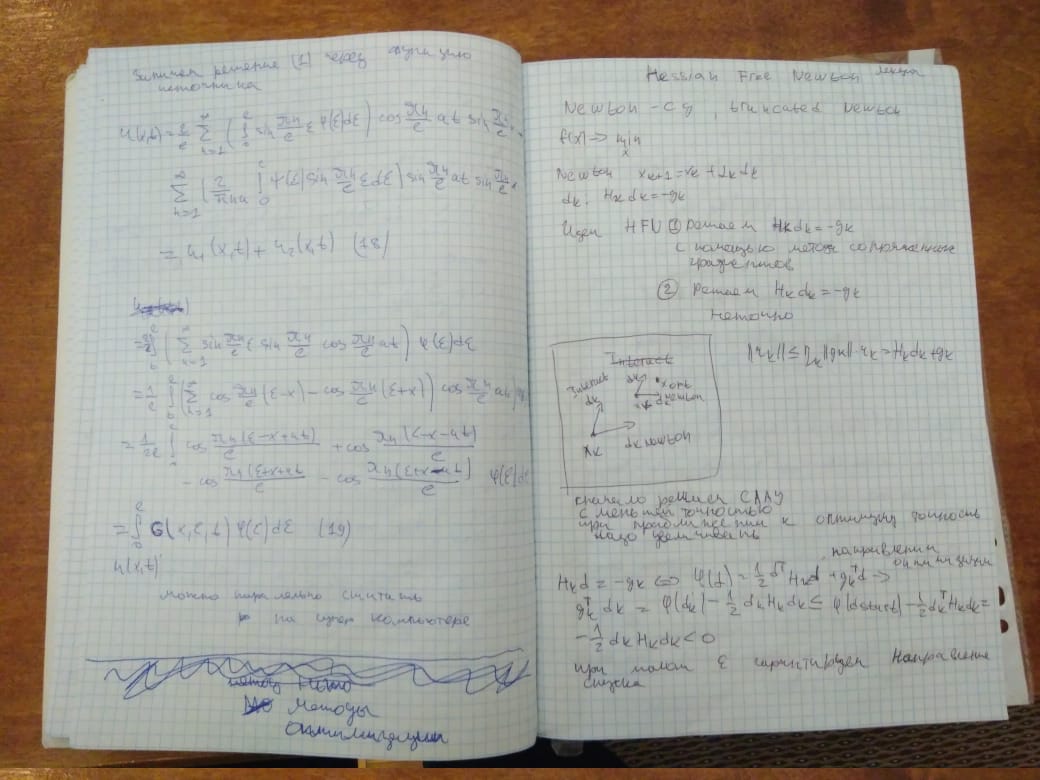 Запишем решение (1) через функцию
источника
u(x,t) = 2/l ∑ n=1 ∞ ( ∫ 0 l sin πn/l ξ φ(ξ)dξ ) cos πn/l at sin πn/l x +
∑ n=1 ∞ ( 2/πna ∫ 0 l ψ(ξ) sin πn/l ξ dξ ) sin πn/l at sin πn/l x
= u₁(x,t) + u₂(x,t) (18)
= 2/l ∫ 0 l ( ∑ n=1 ∞ sin πn/l ξ sin πn/l cos πn/l at ) φ(ξ)dξ
= 1/l ∫ 0 l ( ∑ n=1 ∞ cos πn/l (ξ-x) - cos πn/l (ξ+x) ) cos πn/l at
= 1/2l ∫ cos πn(ξ-x+at)/l + cos πn(ξ-x-at)/l
- cos πn(ξ+x+at)/l - cos πn(ξ+x-at)/l φ(ξ)dξ
= ∫ 0 l G(x,ξ,t) φ(ξ)dξ (19)
u(x,t)
можно паралельно считать
на супер компьютере
Методы
оптимизации
Hessian Free Newton лекция
Newton - cg, truncated Newton
f(x) → min x
Newton xk+1 = xk + αk dk
dk: Hk dk = -gk
Идеи HFN ① Решаем Hk dk = -gk
с помощью метода сопряженных
градиентов
② Решаем Hk dk = -gk
Неточно
||rk|| ≤ ηk ||gk|| rk = Hk dk + gk
Inexact
Inexact dk
dk
xopt
dk newton
xk
xk
dk newton
сначало решися СЛАУ
с меньшей точностью
при приближении к оптимуму точность
надо увеличивать
направлении
оптимизации
Hk d = -gk ⇔ φ(d) = 1/2 dᵀ Hk d + gkᵀ d →
gkᵀ dk = φ(dk) - 1/2 dk Hk dk ≤ φ(dstart) - 1/2 dkᵀ Hk dk =
- 1/2 dk Hk dk < 0
при малом ε гарантирован направление
спуска